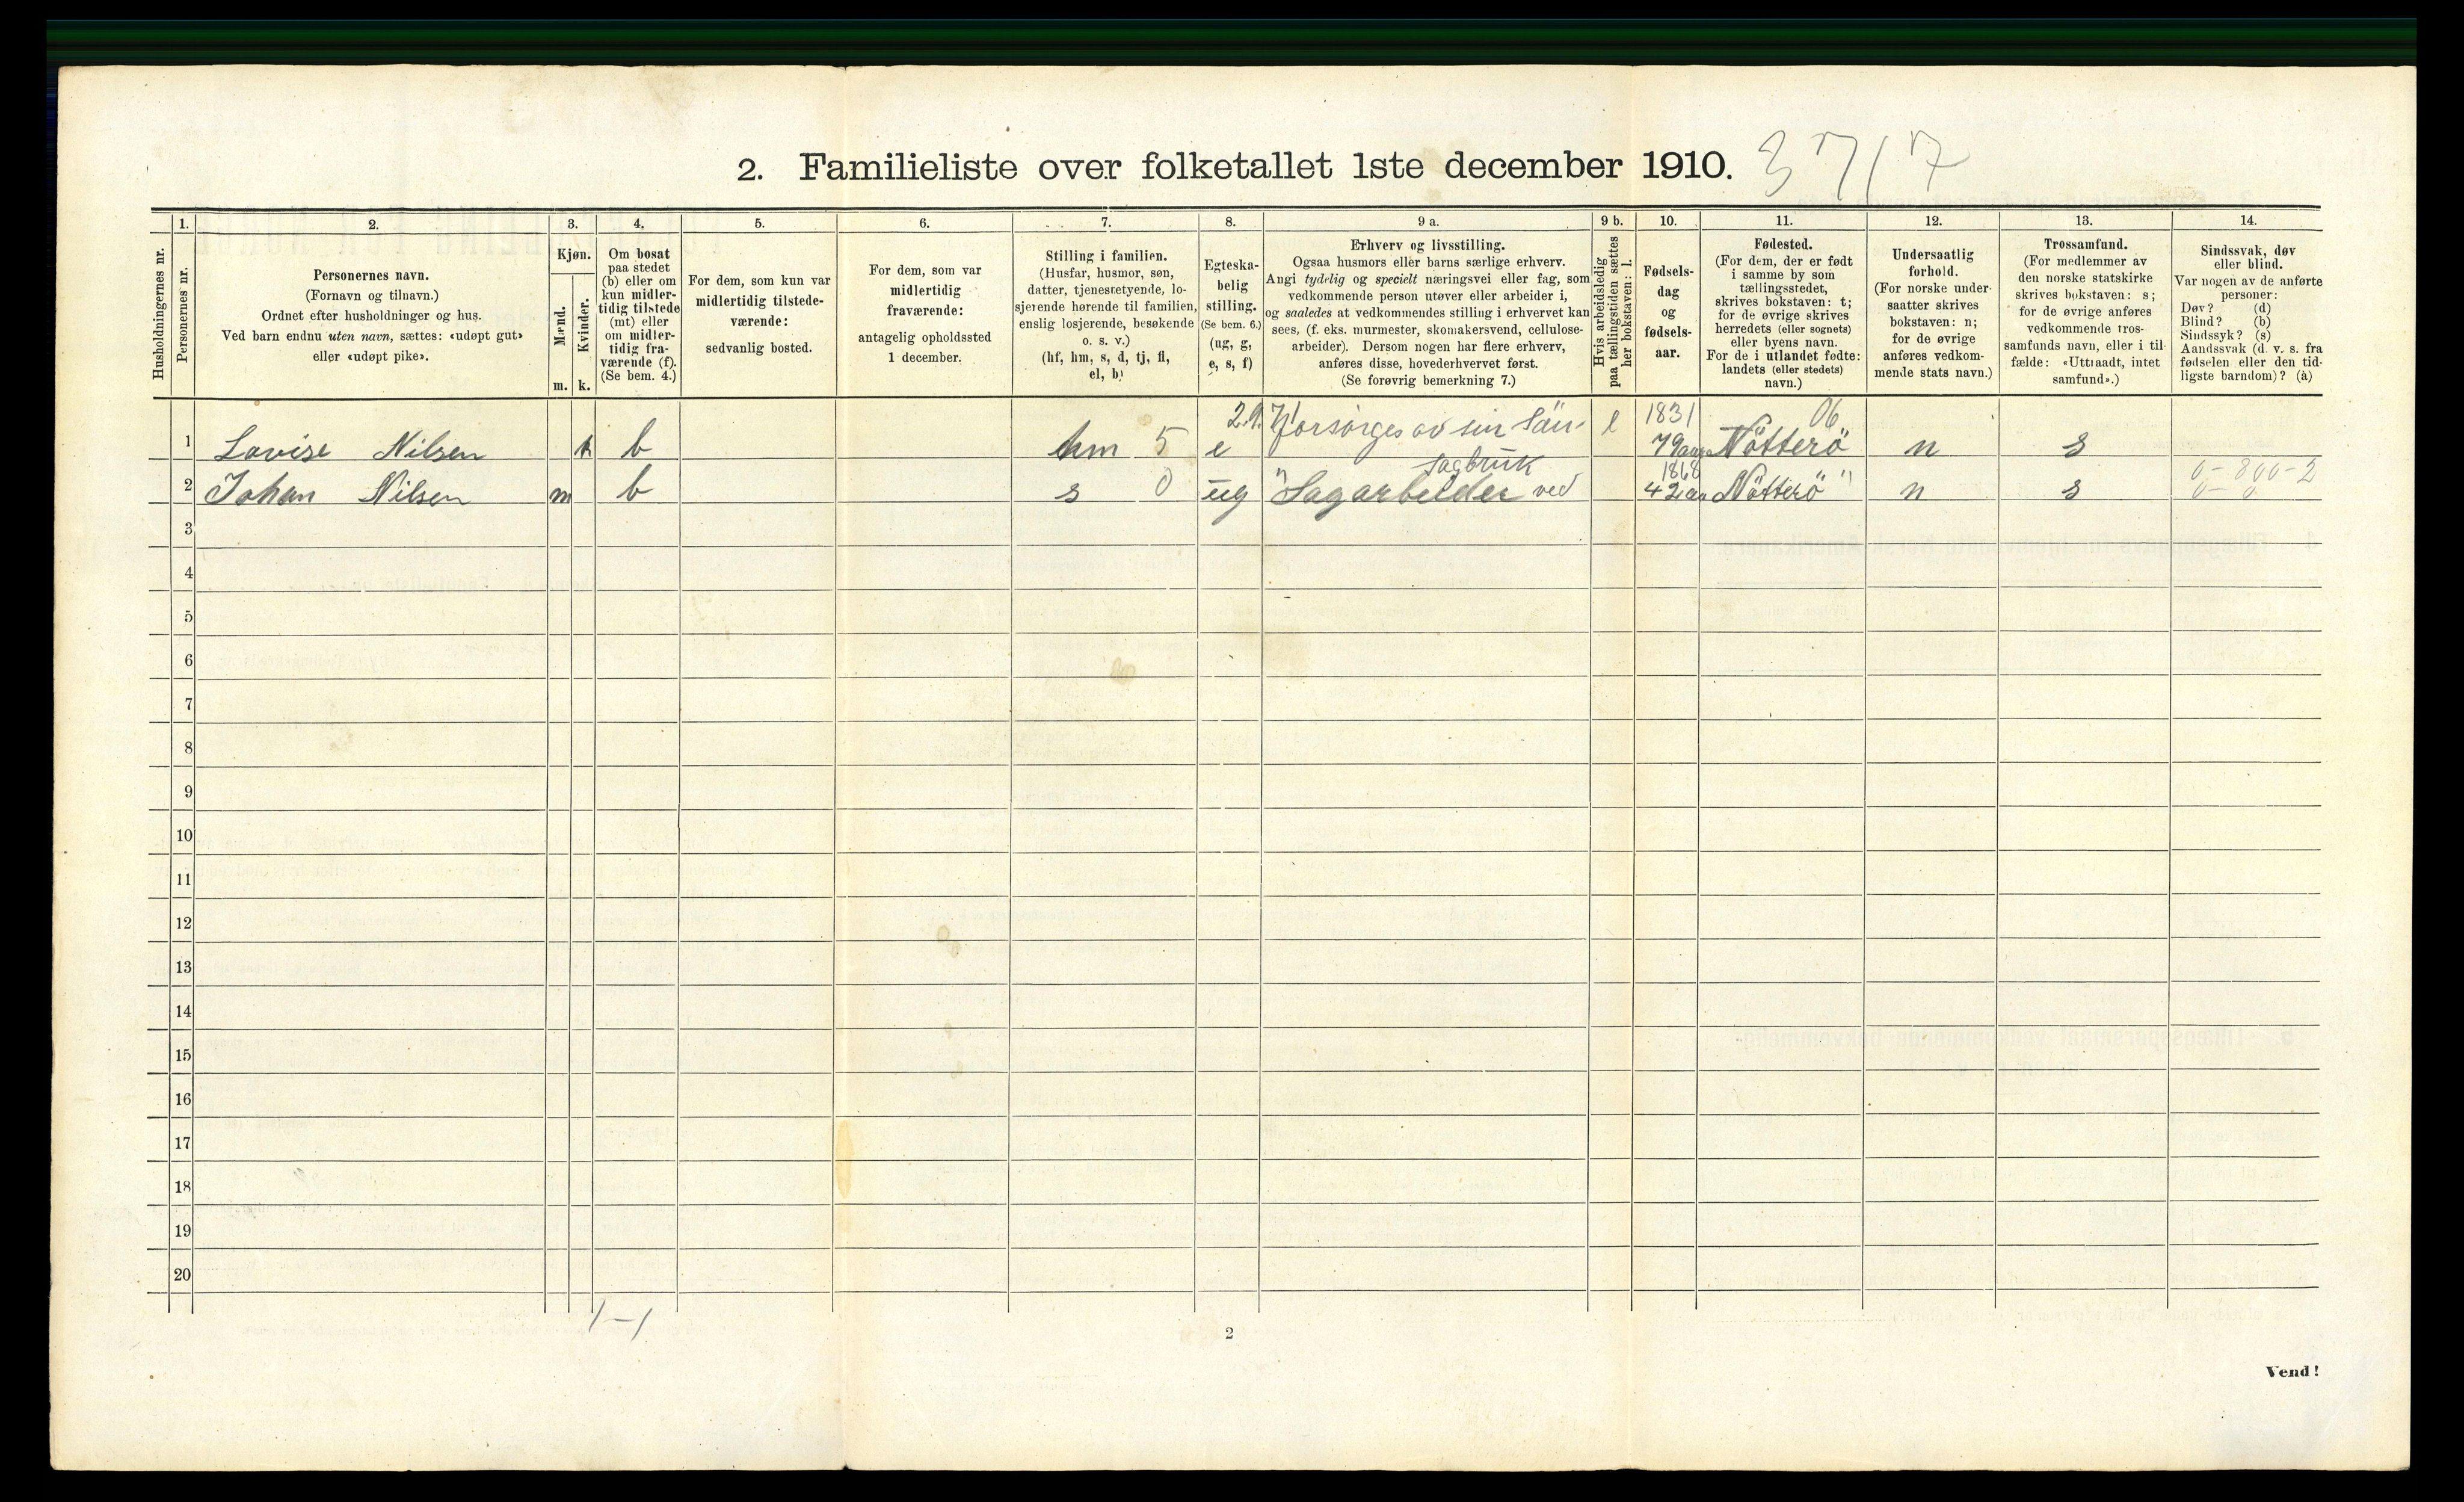 2. Familieliste over folketallet 1ste december 1910. 3717
1. 2. 3. 4. 5. 6. 7. 8. 9 a. 9 b. 10. 11. 12. 13. 14.
Husholdningernes nr.
Personernes nr.
Personernes navn.
(Fornavn og tilnavn.)
Ordnet efter husholdninger og hus.
Ved barn endnu uten navn, sættes: «udøpt gut»
eller «udøpt pike».
Kjøn.
Mænd.
m.
Kvinder.
k.
Om bosat
paa stedet
(b) eller om
kun midler-
tidig tilstede
(mt) eller
om midler-
tidig fra-
værende (f).
(Se bem. 4.)
For dem, som kun var
midlertidig tilstede-
værende:
sedvanlig bosted.
For dem, som var
midlertidig
fraværende:
antagelig opholdssted
1 december.
Stilling i familien.
(Husfar, husmor, søn,
datter, tjenestetyende, lo-
sjerende hørende til familien,
enslig losjerende, besøkende
o. s. v.)
(hf, hm, s, d, tj, fl,
el, b)
Egteska-
belig
stilling.
(Se bem. 6.)
(ug, g,
e, s, f)
Erhverv og livsstilling.
Ogsaa husmors eller barns særlige erhverv.
Angi tydelig og specielt næringsvei eller fag, som
vedkommende person utøver eller arbeider i,
og saaledes at vedkommendes stilling i erhvervet kan
sees, (f. eks. murmester, skomakersvend, cellulose-
arbeider). Dersom nogen har flere erhverv,
anføres disse, hovederhvervet først.
(Se forøvrig bemerkning 7.)
Hvis arbeidsledig
paa tællingstiden sættes
her bokstaven: l.
Fødsels-
dag
og
fødsels-
aar.
Fødested.
(For dem, der er født
i samme by som
tællingsstedet,
skrives bokstaven: t;
for de øvrige skrives
herredets (eller sognets)
eller byens navn.
For de i utlandet fødte:
landets (eller stedets)
navn.)
Undersaatlig
forhold.
(For norske under-
saatter skrives
bokstaven: n;
for de øvrige
anføres vedkom-
mende stats navn.)
Trossamfund.
(For medlemmer av
den norske statskirke
skrives bokstaven: s;
for de øvrige anføres
vedkommende tros-
samfunds navn, eller i til-
fælde: «Uttraadt, intet
samfund».)
Sindssvak, døv
eller blind.
Var nogen av de anførte
personer:
Døv? (d)
Blind? (b)
Sindssyk? (s)
Aandssvak (d. v. s. fra
fødselen eller den tid-
ligste barndom)? (å)
1 Lovise Nilsen k b hm 5 e Forsörges av sin Sön l 1831 79 aar Nötterö 06 n s
2 Johan Nilsen m b s 0 ug Sagarbeider ved sagbruk 1868 42 aar Nötterö " n s 0-800-2
0-0
3
4
5
6
7
8
9
10
11
12
13
14
15
16
17
18
19
20
1-1
2
Vend!